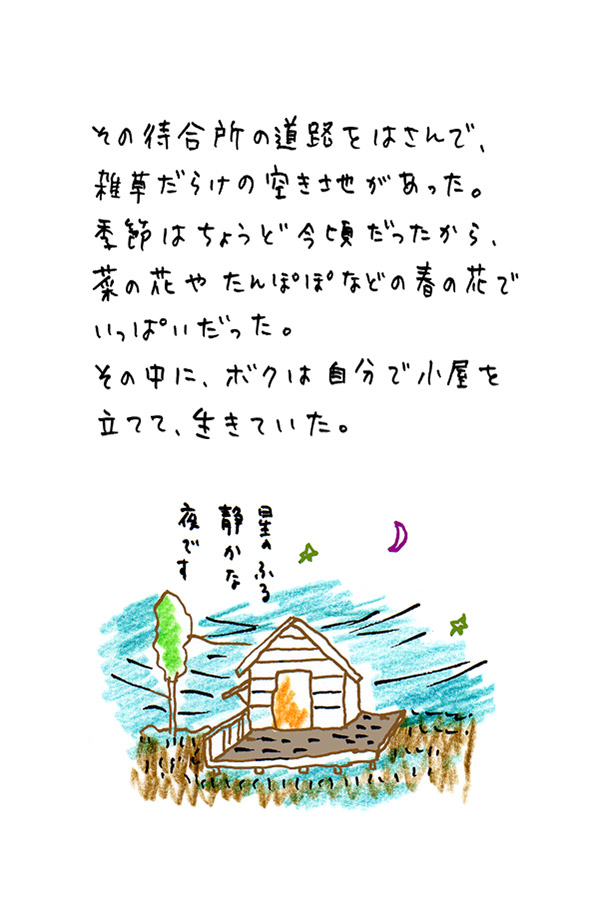 その待合所の道路をはさんで、
雑草だらけの空き地があった。
季節はちょうど今頃だったから、
菜の花や たんぽぽなどの春の花で
いっぱいだった。
その中に、ボクは自分で小屋を
立てて、生きていた。
星のふる
静かな
夜です